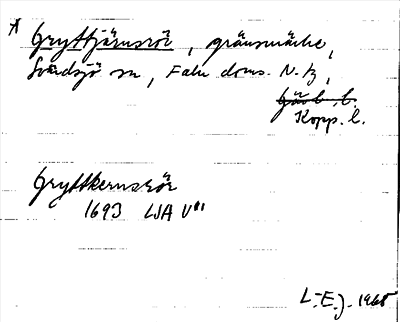 * Gryttjärnsrör, gränsmärke,
Svärdsjö sn, Falu doms. N. tg,
Gävleb. l.
Kopp. l.
Gryttkernsrör
1693 LSA V"
L-E.J. 1965